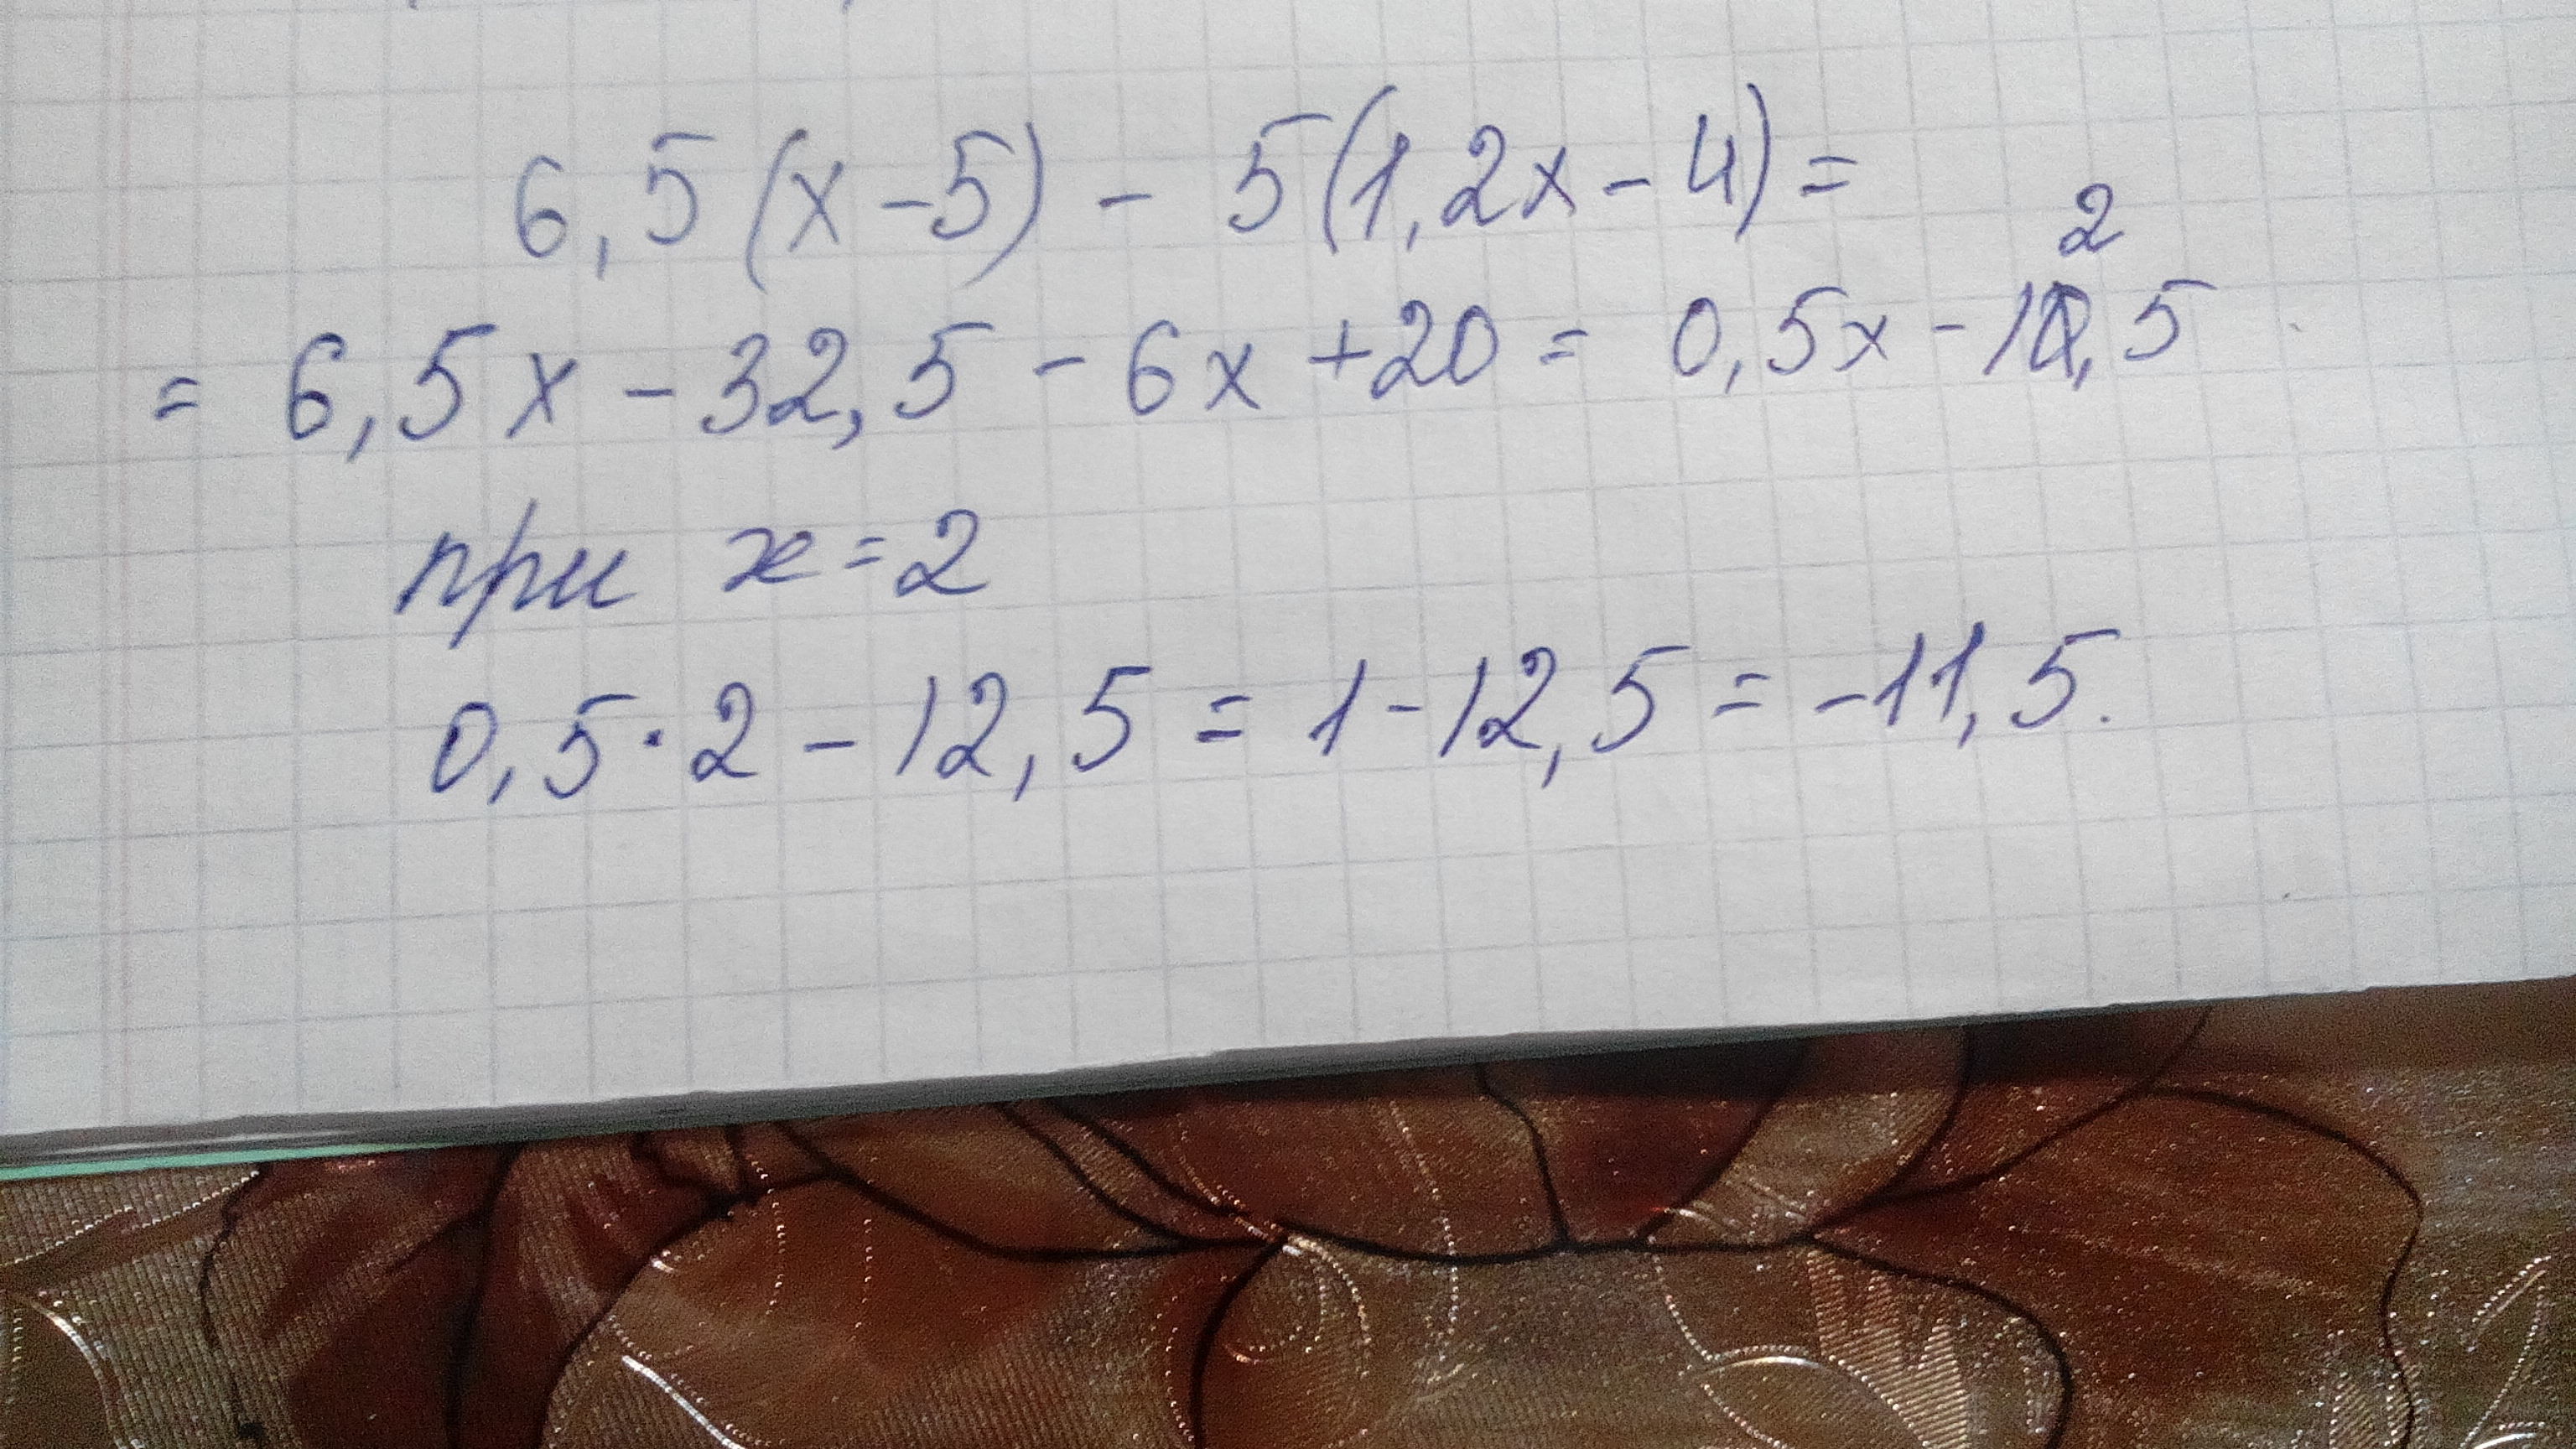 6,5(x-5) - 5(1,2x-4)=
= 6,5x - 32,5 - 6x + 20 = 0,5x - 12,5
при x=2
0,5·2 - 12,5 = 1 - 12,5 = -11,5.